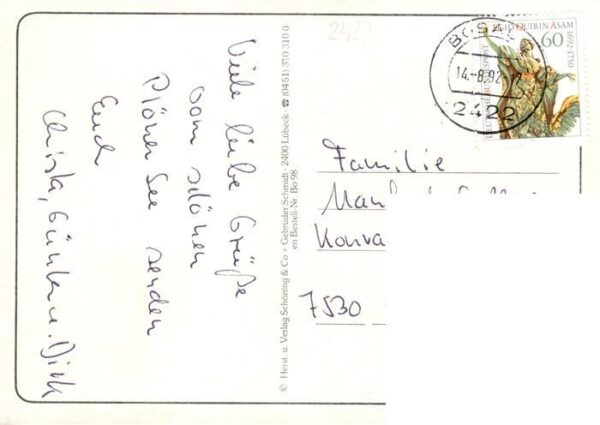 Viele liebe Grüße
vom schönen
Plöner See senden
Euch
Christa, Günter u. Dirk
© Herst. u. Verlag Schöning & Co + Gebrüder Schmidt · 2400 Lübeck · ☎ (0451) 3 10 31 0 0
en Bestell-Nr. Bo 98
2422
BOSAU
14.-8.92
2422
EGID QUIRIN ASAM
1692-1750
60
DEUTSCHE BUNDESPOST
Familie
Konra
7530